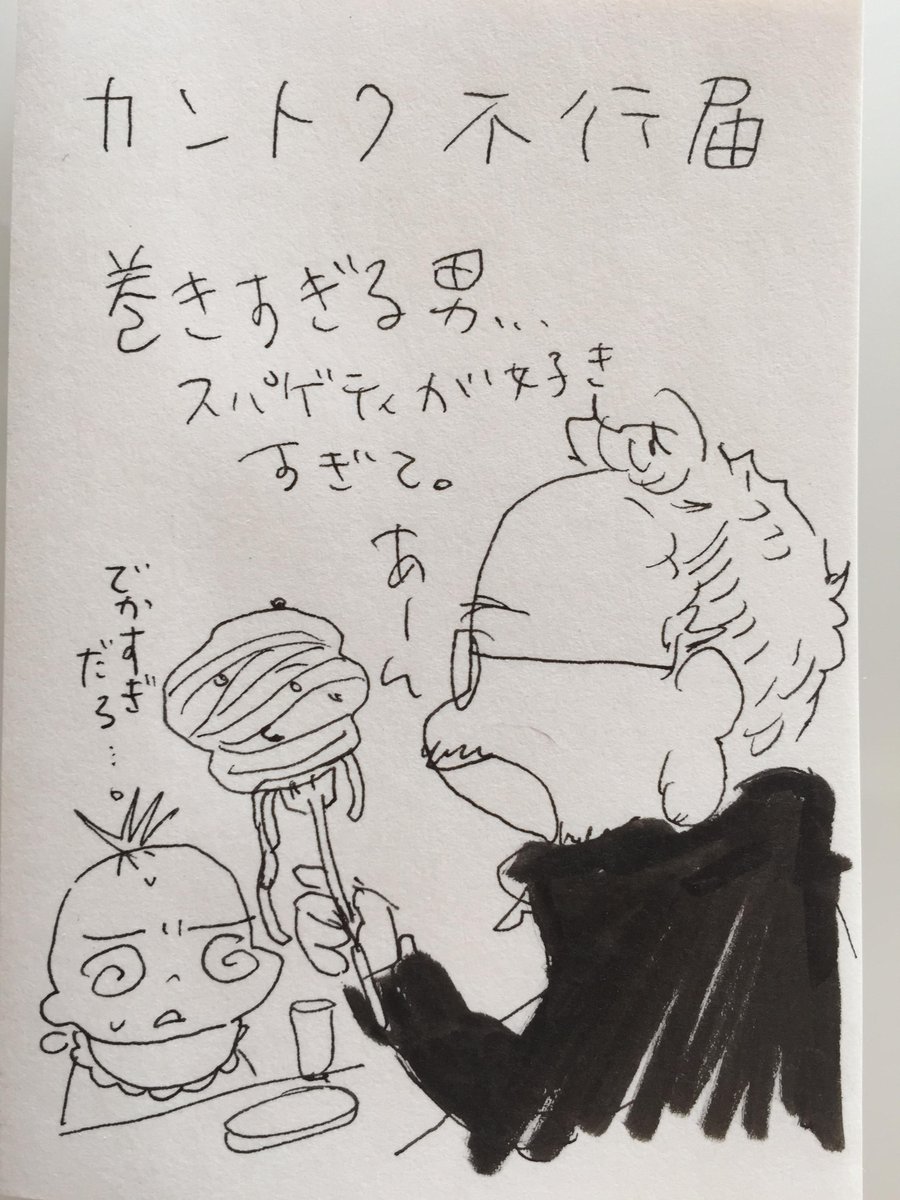 カントク不行届
巻きすぎる男...
スパゲティが好き
すぎて。
あーん
でかすぎ
だろ...。